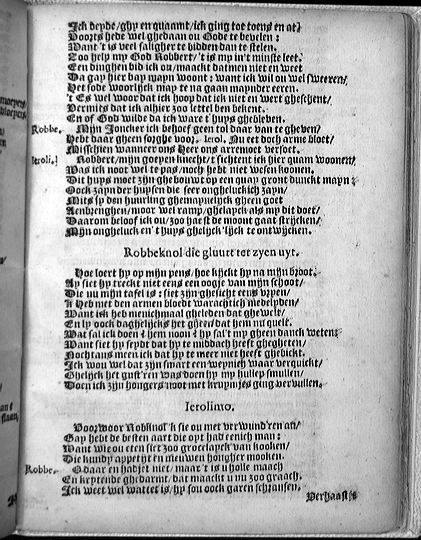 Ick deyde/ghy en quaamt/ick ging tot toens en at?
Voorts hebe wel ghedaan ou Gode te bevelen:
Want 't is veel saligher te bidden dan te stelen.
Soo help my God Robbert/'t is my in't minste leet.
Een dinghen bid ick ou/maackt datmen niet en weet
Da gay hier bay mayn woont: want ick wil ou wel sweeren/
Het sode woorlijck may te na gaan maynder eeren.
't Es wel woor dat ick hoop dat ick niet en wert gheschent/
Vermits dat ick alhier zoo lettel ben bekent.
En of God wilde da ick ware t'huys ghebleven.
Robbe. Mijn Joncker ick behoef geen tol daar van te gheven?
Hebt daar gheen sorghe voor. Ierol. Nu eet doch arme bloet/
Misschien wanneer ons Heer ons arremoet versoet.
Ieroli. Robbert/mijn goeyen knecht/'t sichtent ick hier quam woonen/
Was ick noot wel te pas/noch hebt niet wesen koonen.
Dit huys moet zijn ghebouwt op een quay gront dunckt mayn:
Oock zayn der huysen die seer ongheluckich zayn/
Mits sy den huurling ghemaynelijck gheen goet
Aenbrenghen/moor wel ramp/ghelayck als my dit doet/
Daarom beloof ick ou/zoo haest de moont gaat strijcken/
Mijn ongheluck en't huys ghelijck'lijck te ontwijcken.
Robbeknol die gluurt ter zyen uyt.
Hoe loert hy op mijn pens/hoe kijckt hy na mijn broot.
Ay siet hy treckt niet eens een oogje van mijn schoot/
Die nu mijn tafel is: siet zijn ghesicht eens vryen/
'k Heb met den armen bloedt waarachtich medelyden/
Want ick heb menichmaal gheleden dat ghewelt/
En hy oock daghelijcks het gheen dat hem nu quelt.
Wat sal ick doen? hem noon? hy sal't my gheen danck weten?
Want siet hy seydt dat hy te middach heeft ghegheten/
Nochtans meen ick dat hy te meer niet heeft ghebickt.
Ick wou wel dat zijn smart een weynich waar verquickt/
Ghelijck het gist'ren was doen hy my hulp smullen/
Doen ick zijn hongers noot met kruymjes ging vervullen.
Ierolimo.
Voorwoor Robknol 'k sie ou met verwund'ren an/
Gay hebt de besten aart die opt had eenich man:
Want wie ou eten siet zoo groeelayck van kooken/
Die kundy appetijt en nieuwen hongher mooken.
Robbe. O daar en hadjet niet/maar 't is u holle maach
En kreytende ghedarmt/dat maackt u nu zoo graach.
Ick weet wel wattet is/hy sou oock garen schransen/
Verhaast